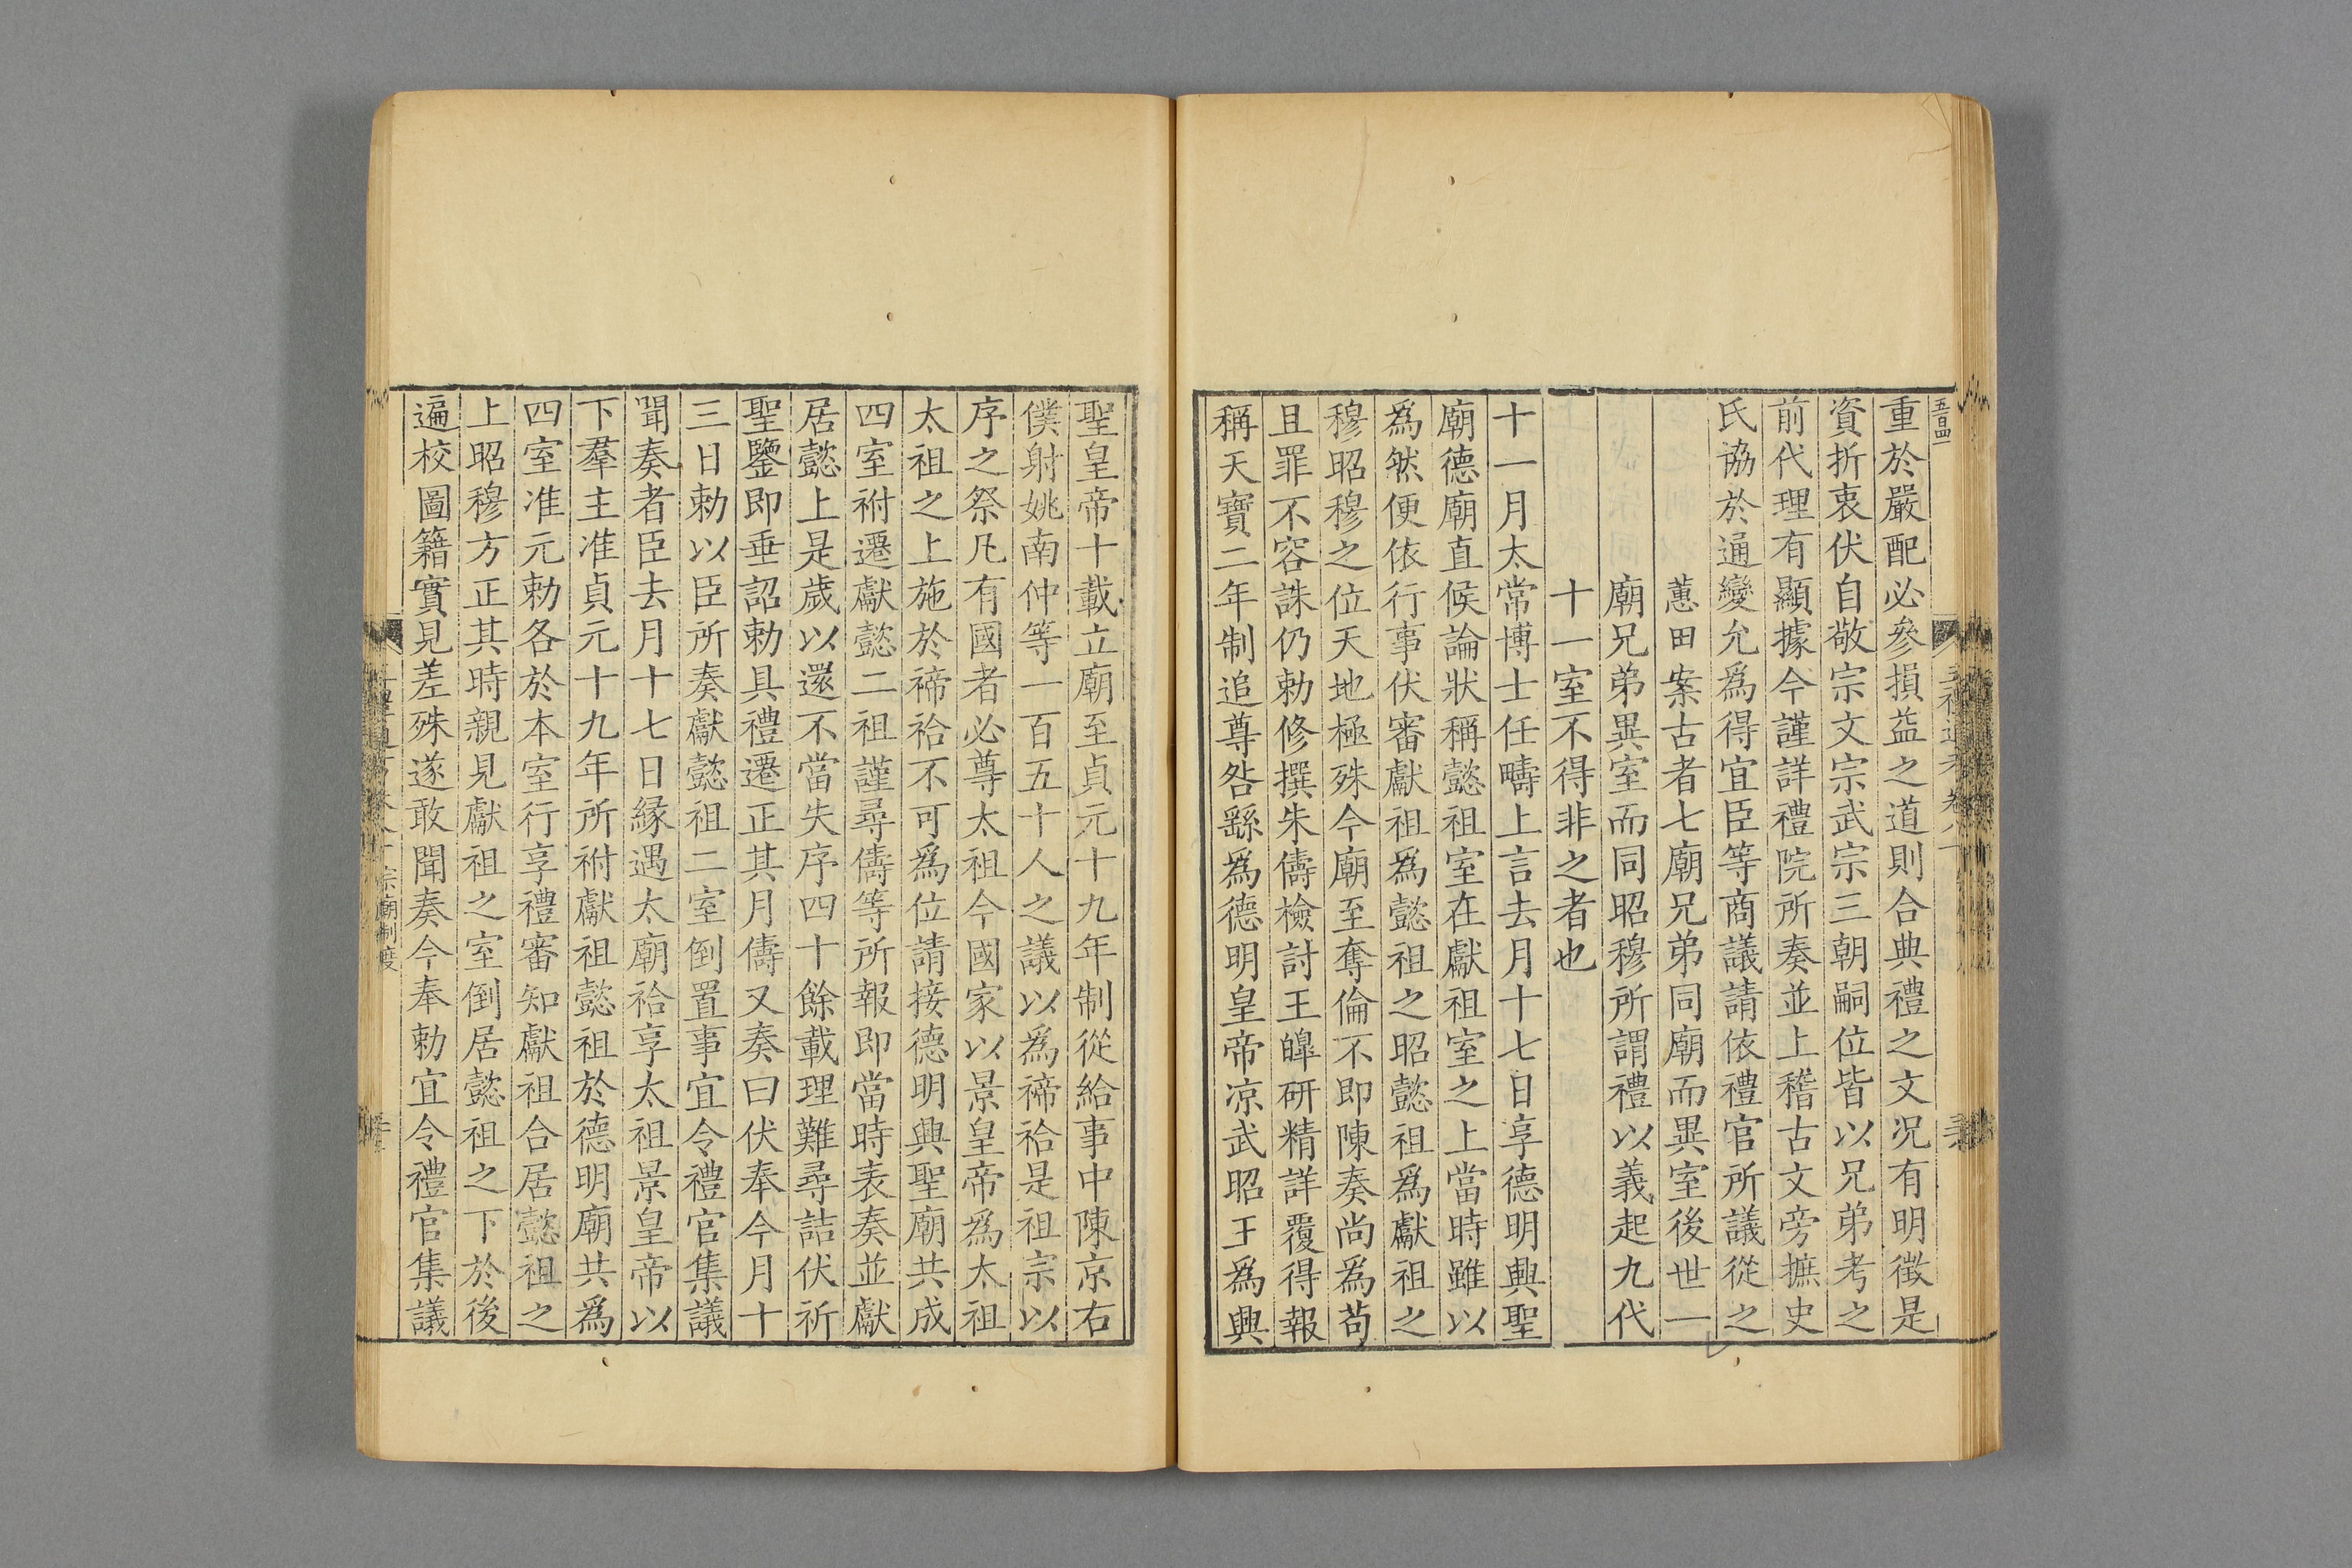 重於嚴配必參損益之道則合典禮之文况有明徵是
資折衷伏自敬宗文宗武宗三朝嗣位皆以兄弟考之
前代理有顯據今謹詳禮院所奏並上稽古文旁摭史
氏協於通變允爲得宜臣等商議請依禮官所議從之
蕙田案古者七廟兄弟同廟而異室後世一
廟兄弟異室而同昭穆所謂禮以義起九代
十一室不得非之者也
十一月太常博士任疇上言去月十七日享德明興聖
廟德廟直候論狀稱懿祖室在獻祖室之上當時雖以
爲然便依行事伏審獻祖爲懿祖之昭懿祖爲獻祖之
穆昭穆之位天地極殊今廟至奪倫不即陳奏尚爲苟
且罪不容誅仍勅修撰朱儔檢討王皡研精詳覆得報
稱天寶二年制追尊咎繇爲德明皇帝凉武昭王爲興
聖皇帝十載立廟至貞元十九年制從給事中陳京右
僕射姚南仲等一百五十人之議以爲禘祫是祖宗以
序之祭凡有國者必尊太祖今國家以景皇帝爲太祖
太祖之上施於禘祫不可爲位請接德明興聖廟共成
四室祔遷獻懿二祖謹尋儔等所報即當時表奏並獻
居懿上是歲以還不當失序四十餘載理難尋詰伏祈
聖鑒即垂詔勅具禮遷正其月儔又奏曰伏奉今月十
三日勅以臣所奏獻懿祖二室倒置事宜令禮官集議
聞奏者臣去月十七日緣遇太廟祫享太祖景皇帝以
下羣主准貞元十九年所祔獻祖懿祖於德明廟共爲
四室准元勅各於本室行享禮審知獻祖合居懿祖之
上昭穆方正其時親見獻祖之室倒居懿祖之下於後
遍校圖籍實見差殊遂敢聞奏今奉勅宜令禮官集議
宗廟制度